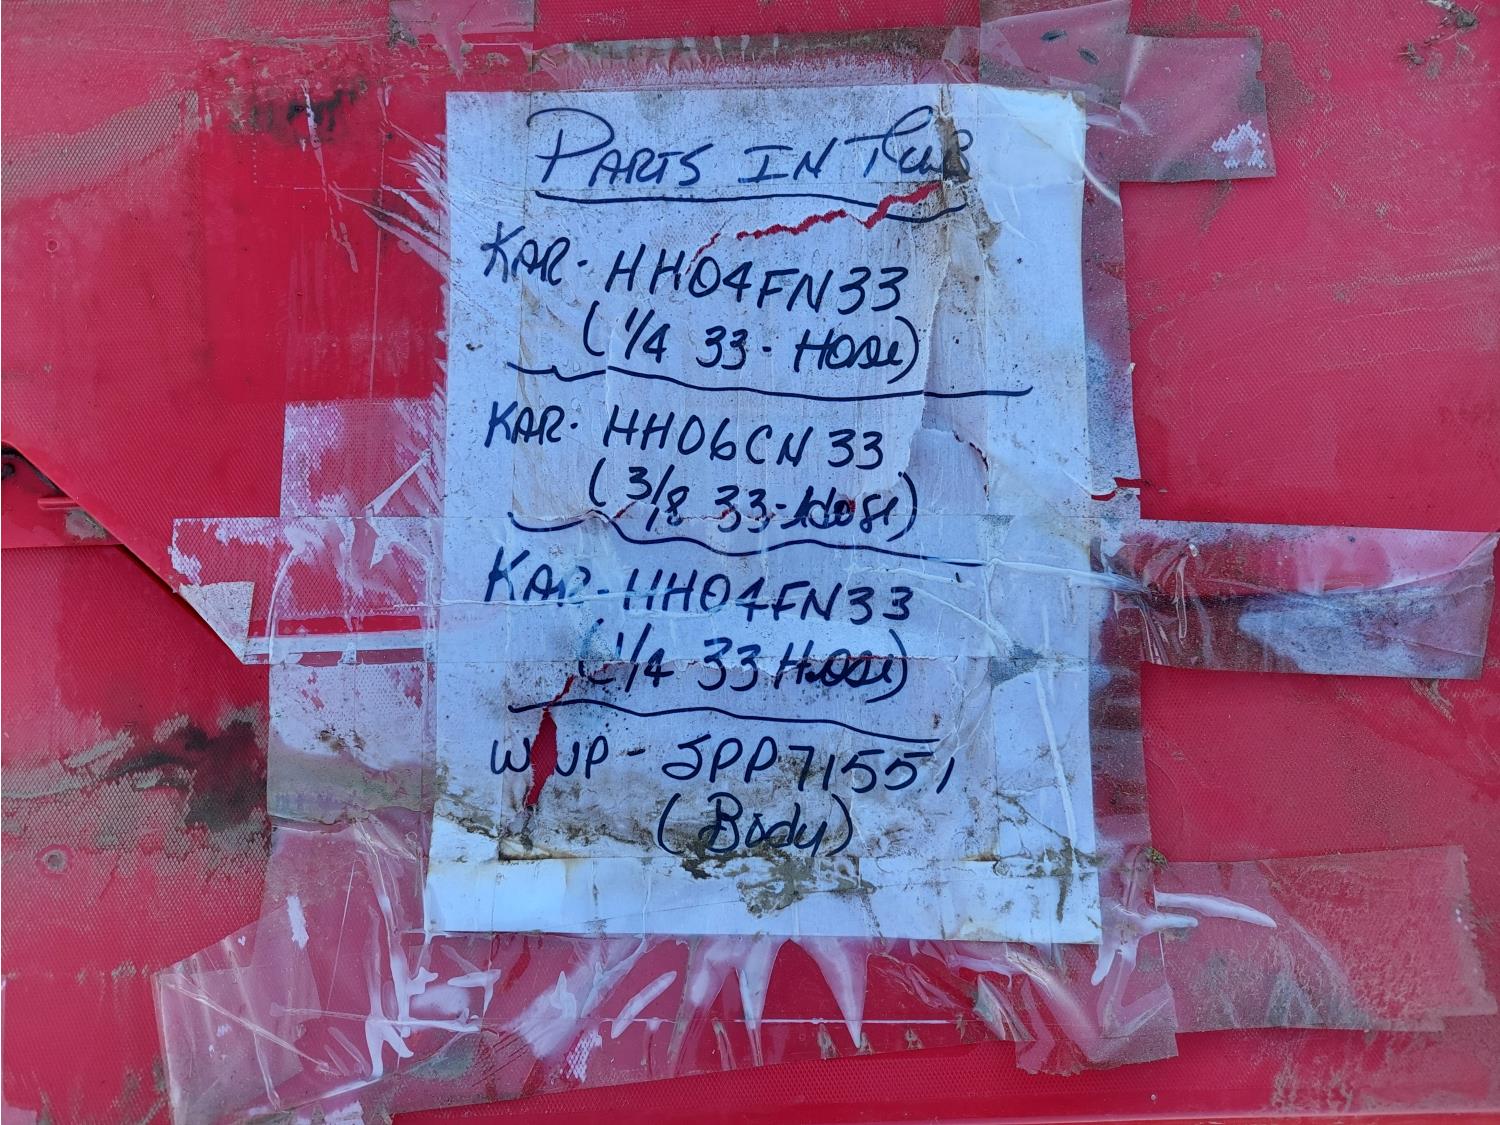 PARTS IN TUB
KAR- HH04FN33
(1/4 33- Hose)
KAR- HH06CN33
(3/8 33-Hose)
KAR- HH04FN33
(1/4 33 Hose)
JPP71551
(Body)